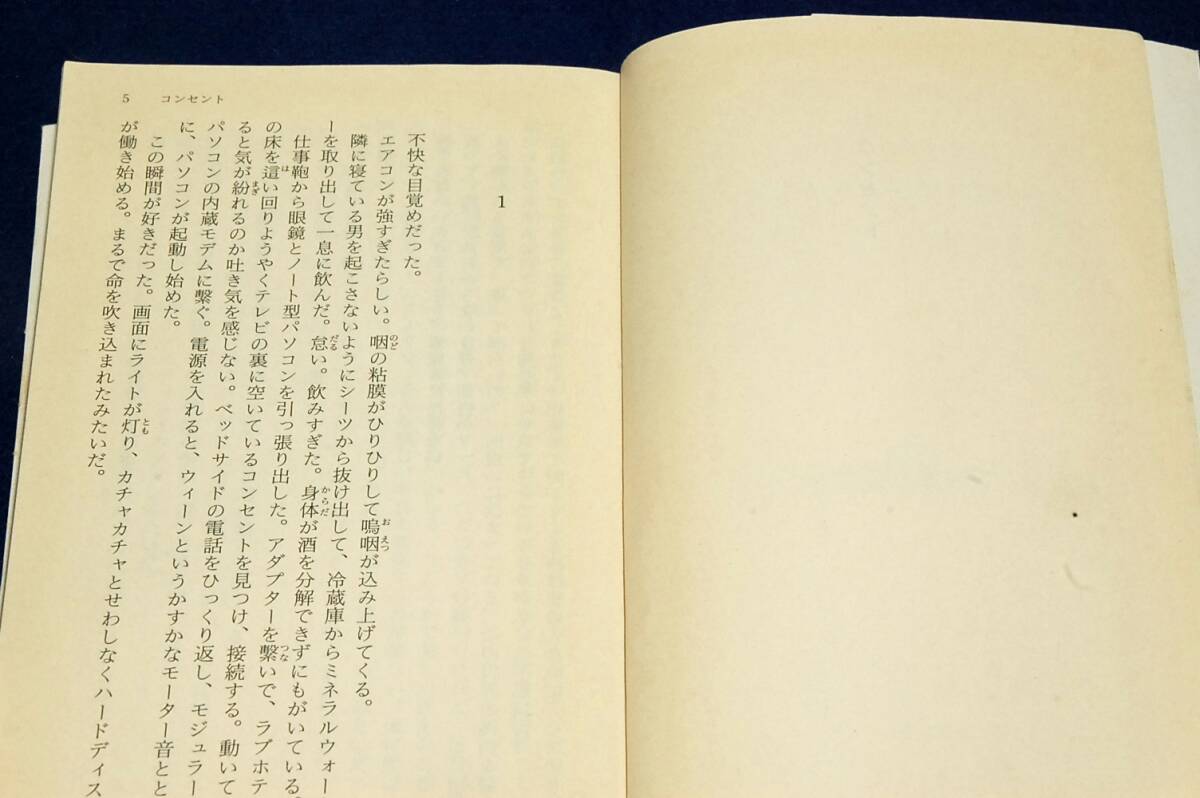 5 コンセント
1
不快な目覚めだった。
エアコンが強すぎたらしい。咽の粘膜がひりひりして嗚咽が込み上げてくる。
隣に寝ている男を起こさないようにシーツから抜け出して、冷蔵庫からミネラルウォー
ーを取り出して一息に飲んだ。怠い。飲みすぎた。身体が酒を分解できずにもがいている。
仕事鞄から眼鏡とノート型パソコンを引っ張り出した。アダプターを繋いで、ラブホテ
の床を這い回りようやくテレビの裏に空いているコンセントを見つけ、接続する。動いて
ると気が紛れるのか吐き気を感じない。ベッドサイドの電話をひっくり返し、モジュラー
パソコンの内蔵モデムに繋ぐ。電源を入れると、ウィーンというかすかなモーター音とと
に、パソコンが起動し始めた。
この瞬間が好きだった。画面にライトが灯り、カチャカチャとせわしなくハードディス
が働き始める。まるで命を吹き込まれたみたいだ。